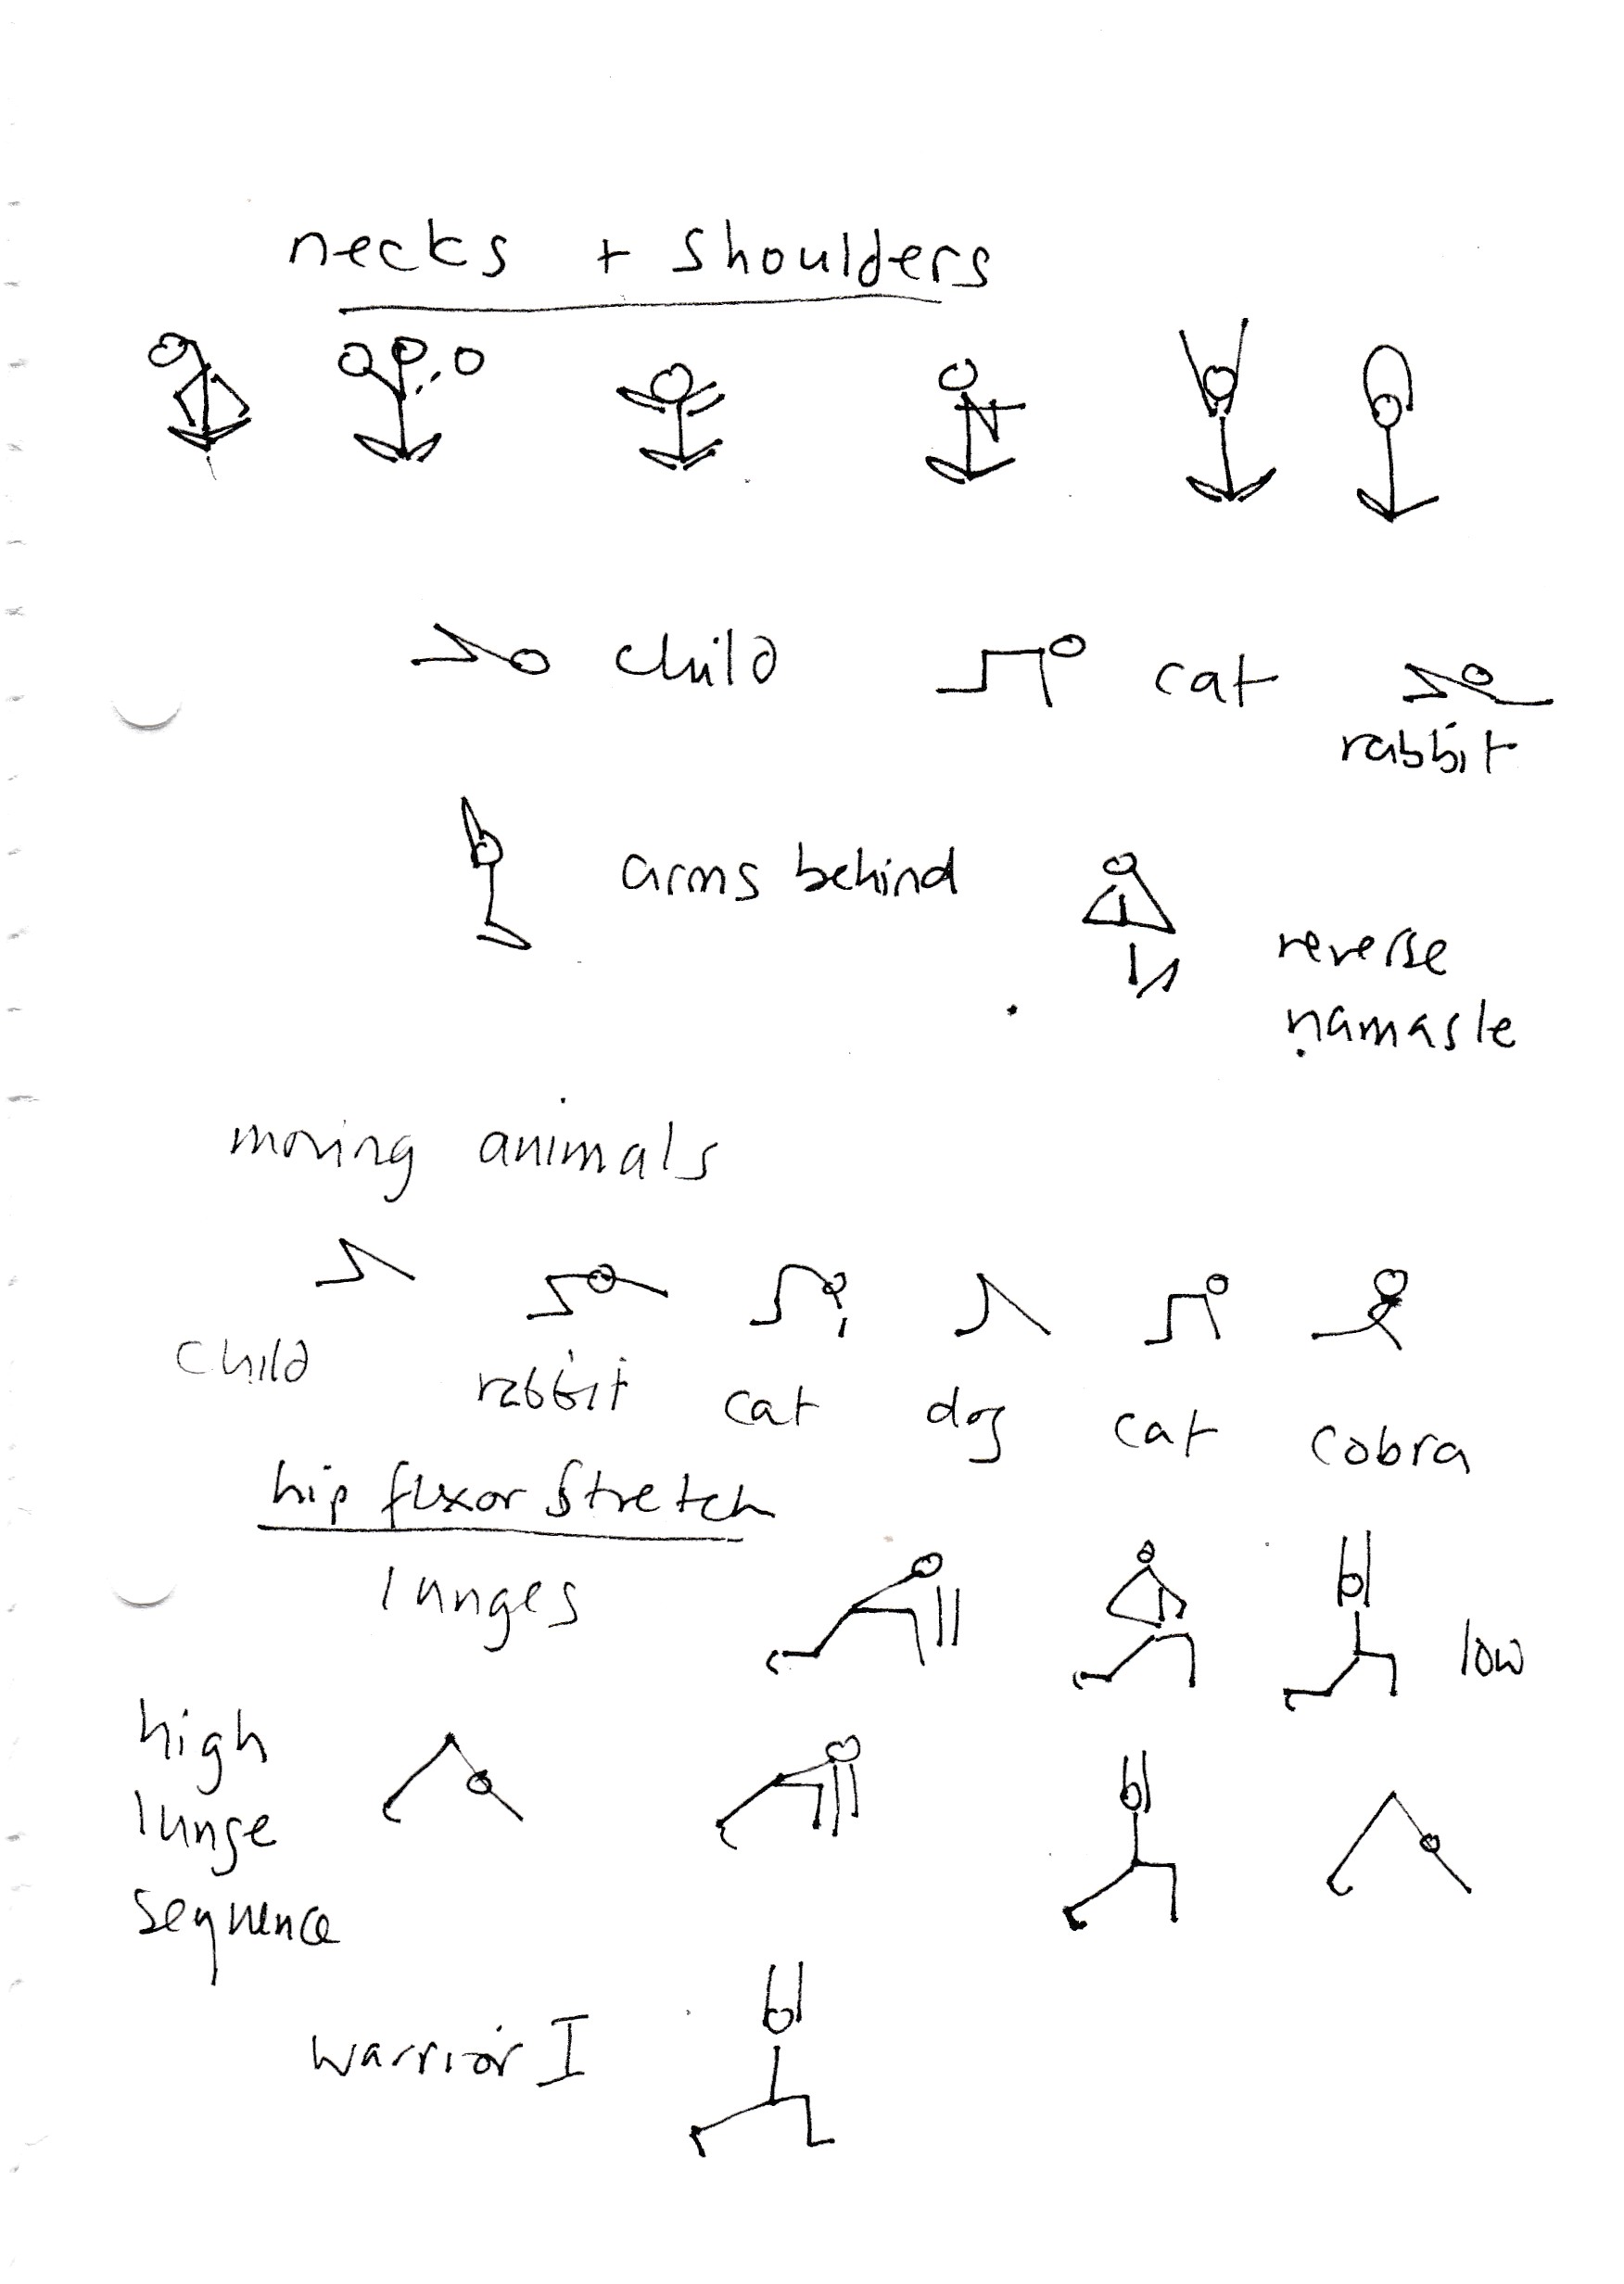 necks + shoulders
child cat
rabbit
arms behind
reverse
namaste
moving animals
child rabbit cat dog cat cobra
hip flexor stretch
lunges
low
high
lunge
sequence
warrior I